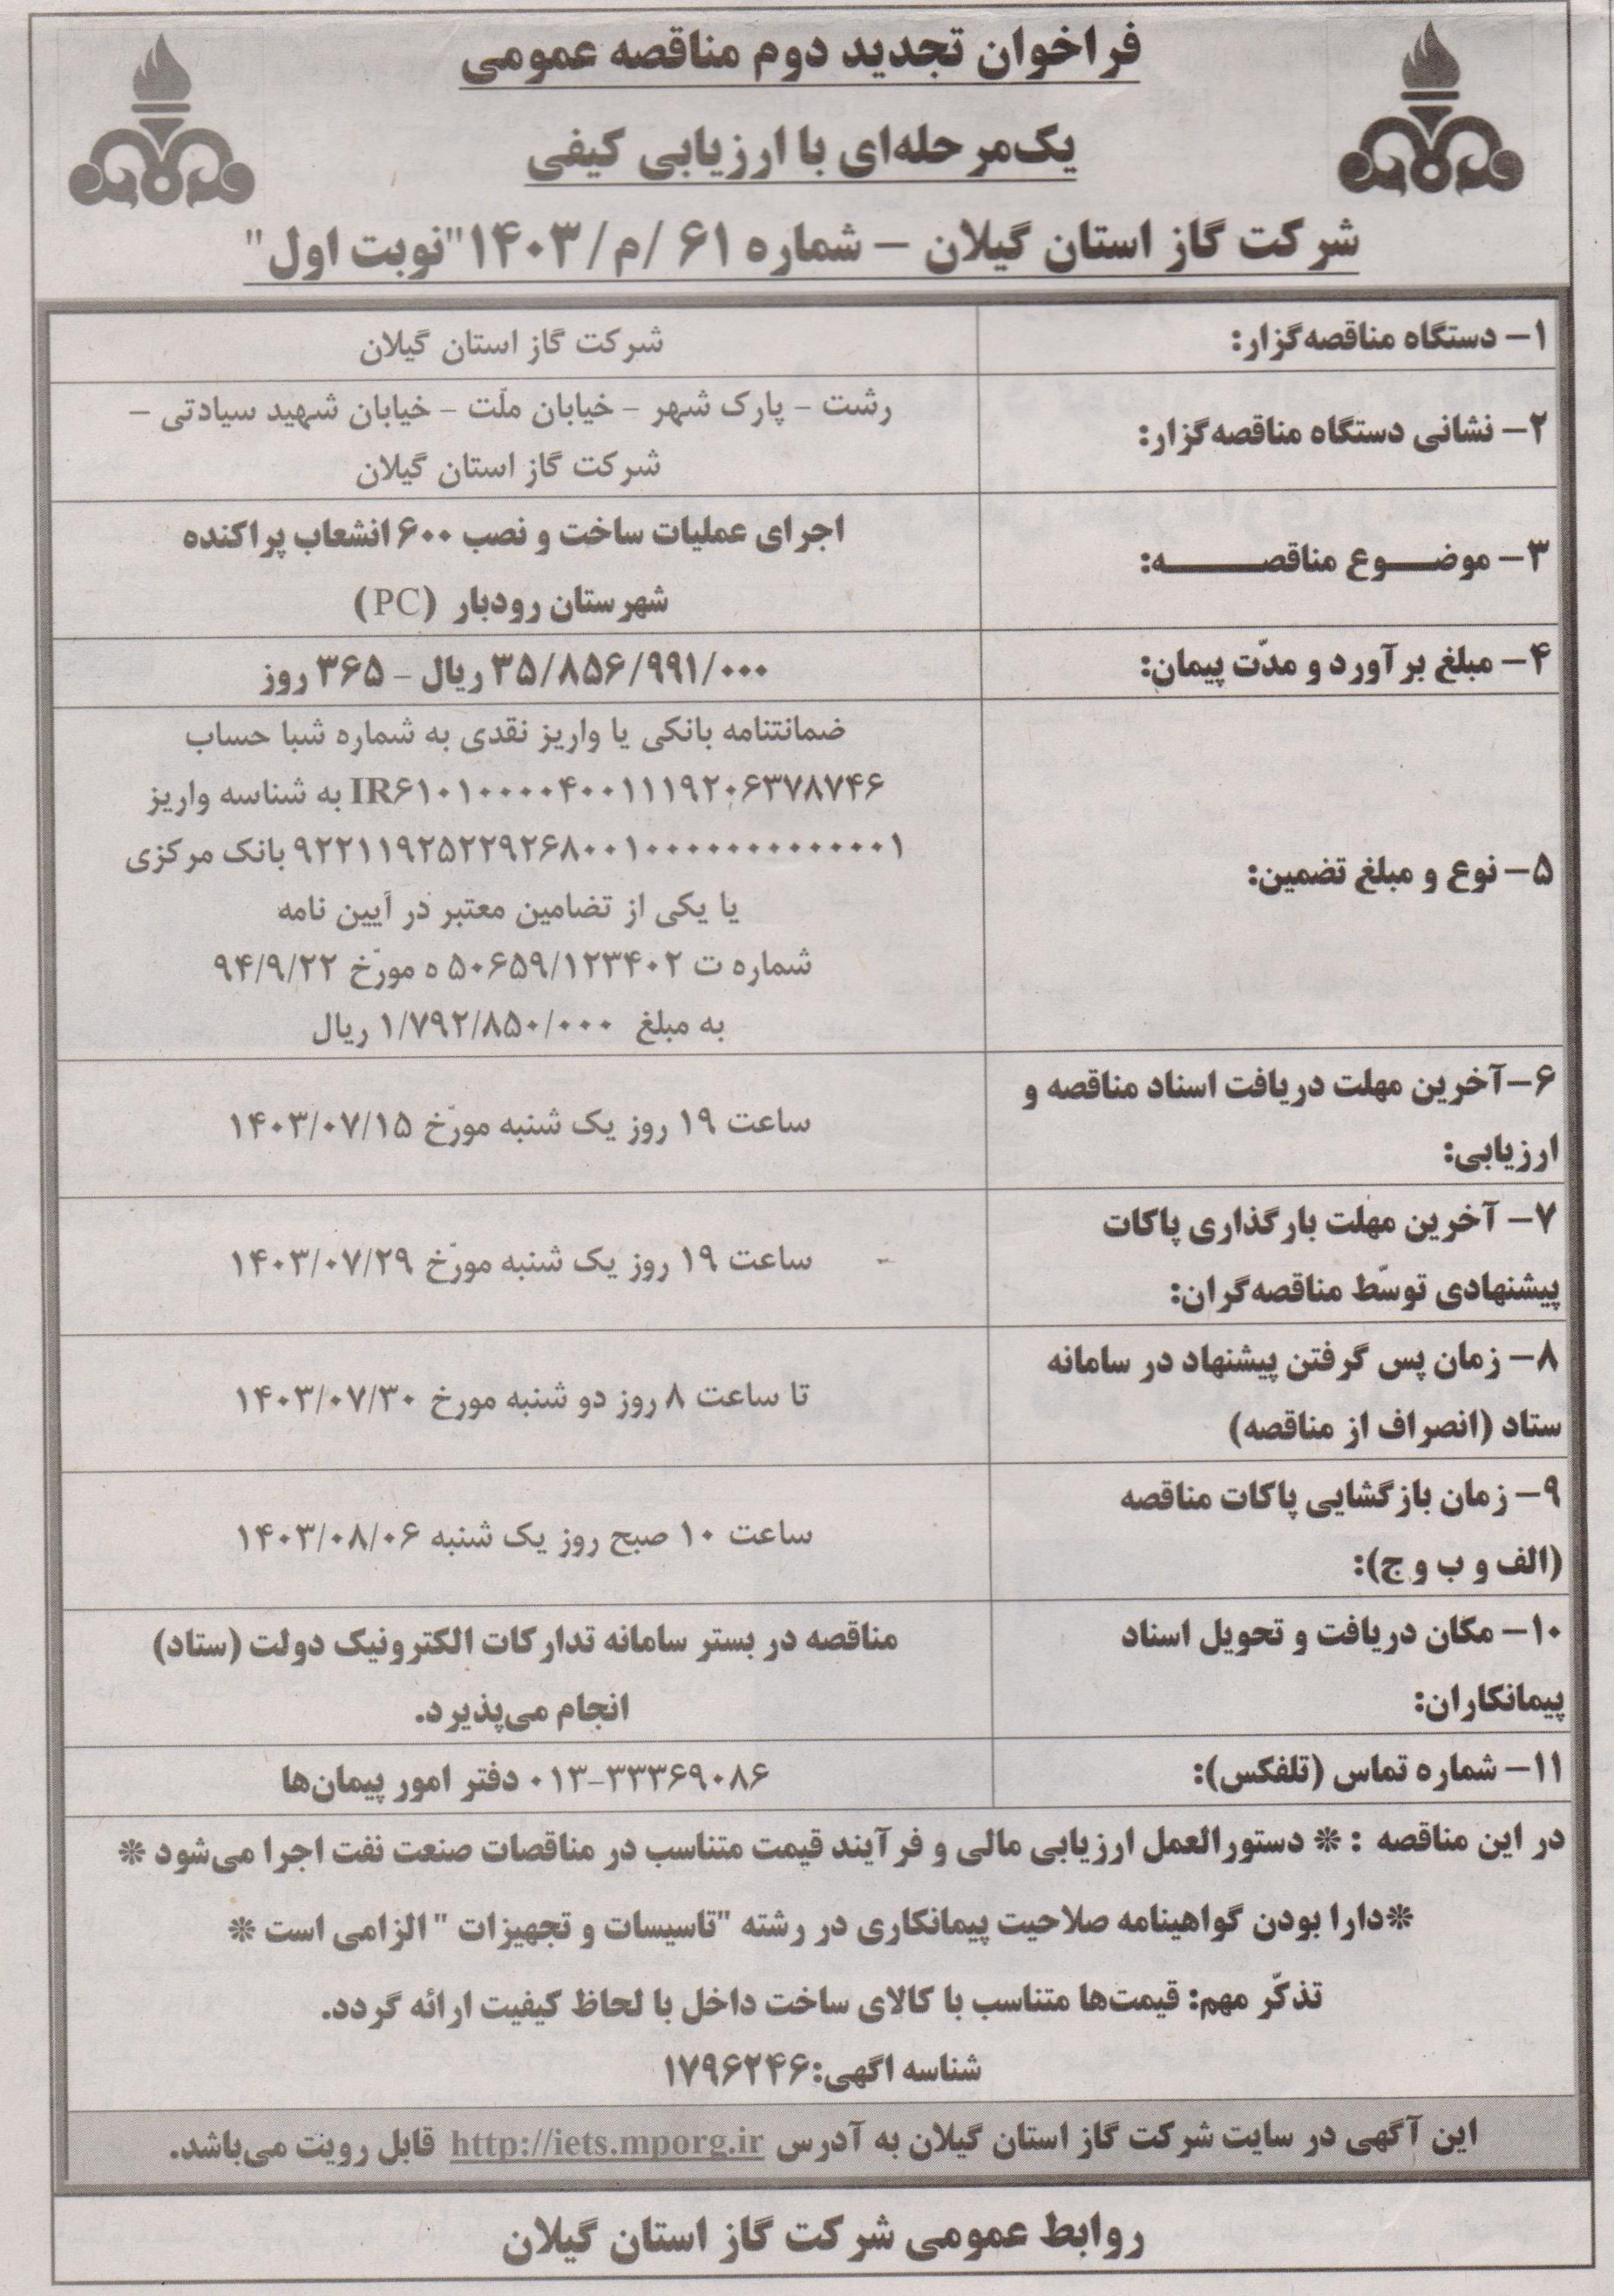 فراخوان تجدید دوم مناقصه عمومی
یک‌مرحله‌ای با ارزیابی کیفی
شرکت گاز استان گیلان – شماره ۶۱ /م/۱۴۰۳"نوبت اول"
۱– دستگاه مناقصه‌گزار:
شرکت گاز استان گیلان
۲– نشانی دستگاه مناقصه‌گزار:
رشت – پارک شهر – خیابان ملّت – خیابان شهید سیادتی –
شرکت گاز استان گیلان
۳– موضـــوع مناقصـــــــه:
اجرای عملیات ساخت و نصب ۶۰۰ انشعاب پراکنده
شهرستان رودبار (PC)
۴– مبلغ برآورد و مدّت پیمان:
۳۵/۸۵۶/۹۹۱/۰۰۰ ریال – ۳۶۵ روز
۵– نوع و مبلغ تضمین:
ضمانتنامه بانکی یا واریز نقدی به شماره شبا حساب
IR۶۱۰۱۰۰۰۰۰۴۰۰۱۱۱۹۲۰۶۳۷۸۷۴۶ به شناسه واریز
۹۲۲۱۱۹۲۵۲۲۹۲۶۸۰۰۱۰۰۰۰۰۰۰۰۰۰۰۰۱ بانک مرکزی
یا یکی از تضامین معتبر در آیین نامه
شماره ت ۵۰۶۵۹/۱۲۳۴۰۲ ه مورّخ ۹۴/۹/۲۲
به مبلغ ۱/۷۹۲/۸۵۰/۰۰۰ ریال
۶–آخرین مهلت دریافت اسناد مناقصه و
ارزیابی:
ساعت ۱۹ روز یک شنبه مورّخ ۱۴۰۳/۰۷/۱۵
۷– آخرین مهلت بارگذاری پاکات
پیشنهادی توسّط مناقصه‌گران:
ساعت ۱۹ روز یک شنبه مورّخ ۱۴۰۳/۰۷/۲۹
۸– زمان پس گرفتن پیشنهاد در سامانه
ستاد (انصراف از مناقصه)
تا ساعت ۸ روز دو شنبه مورخ ۱۴۰۳/۰۷/۳۰
۹– زمان بازگشایی پاکات مناقصه
(الف و ب و ج):
ساعت ۱۰ صبح روز یک شنبه ۱۴۰۳/۰۸/۰۶
۱۰– مکان دریافت و تحویل اسناد
پیمانکاران:
مناقصه در بستر سامانه تدارکات الکترونیک دولت (ستاد)
انجام می‌پذیرد.
۱۱– شماره تماس (تلفکس):
۰۱۳-۳۳۳۶۹۰۸۶ دفتر امور پیمان‌ها
در این مناقصه : * دستورالعمل ارزیابی مالی و فرآیند قیمت متناسب در مناقصات صنعت نفت اجرا می‌شود *
*دارا بودن گواهینامه صلاحیت پیمانکاری در رشته "تاسیسات و تجهیزات " الزامی است *
تذکّر مهم: قیمت‌ها متناسب با کالای ساخت داخل با لحاظ کیفیت ارائه گردد.
شناسه اگهی:۱۷۹۶۲۴۶
این آگهی در سایت شرکت گاز استان گیلان به آدرس http://iets.mporg.ir قابل رویت می‌باشد.
روابط عمومی شرکت گاز استان گیلان